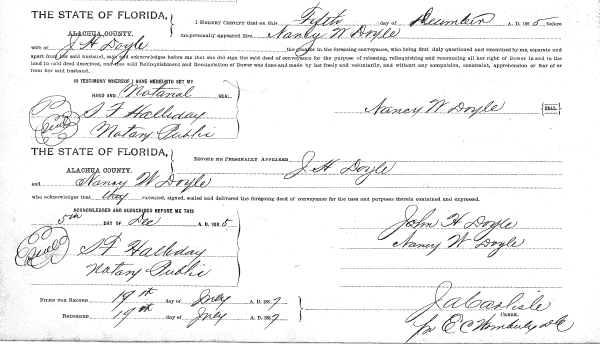 THE STATE OF FLORIDA,
ALACHUA COUNTY.
I HEREBY CERTIFY that on this Fifth day of December A. D. 188 5 before
me, personally appeared Mrs. Nancy W Doyle
wife of J. H Doyle the grantor in the foregoing conveyance, who being first duly questioned and examined by me, separate and
apart from her said husband, says and acknowledges before me that she did sign the said deed of conveyance for the purpose of releasing, relinquishing and renouncing all her right of Dower in and to the
land in said deed described, and that said Relinquishment and Renunciation of Dower was done and made by her freely and voluntarily, and without any compulsion, constraint, apprehension or fear of or
from her said husband.
IN TESTIMONY WHEREOF I HAVE HEREUNTO SET MY
HAND AND Notarial SEAL.
Seal
S F Halliday
Notary Public
Nancy W Doyle SEAL.
THE STATE OF FLORIDA,
ALACHUA COUNTY.
BEFORE ME PERSONALLY APPEARED J H Doyle
and Nancy W Doyle
who acknowledges that they executed, signed, sealed and delivered the foregoing deed of conveyance for the uses and purposes therein contained and expressed.
ACKNOWLEDGED AND SUBSCRIBED BEFORE ME THIS
5th DAY OF Dec A. D. 188 5
Seal
S F Halliday
Notary Public
John H Doyle
Nancy W Doyle
FILED FOR RECORD 19th day of July A. D. 188 7
RECORDED 19th day of July A. D. 188 7
J A Carlisle
CLERK.
pr E C